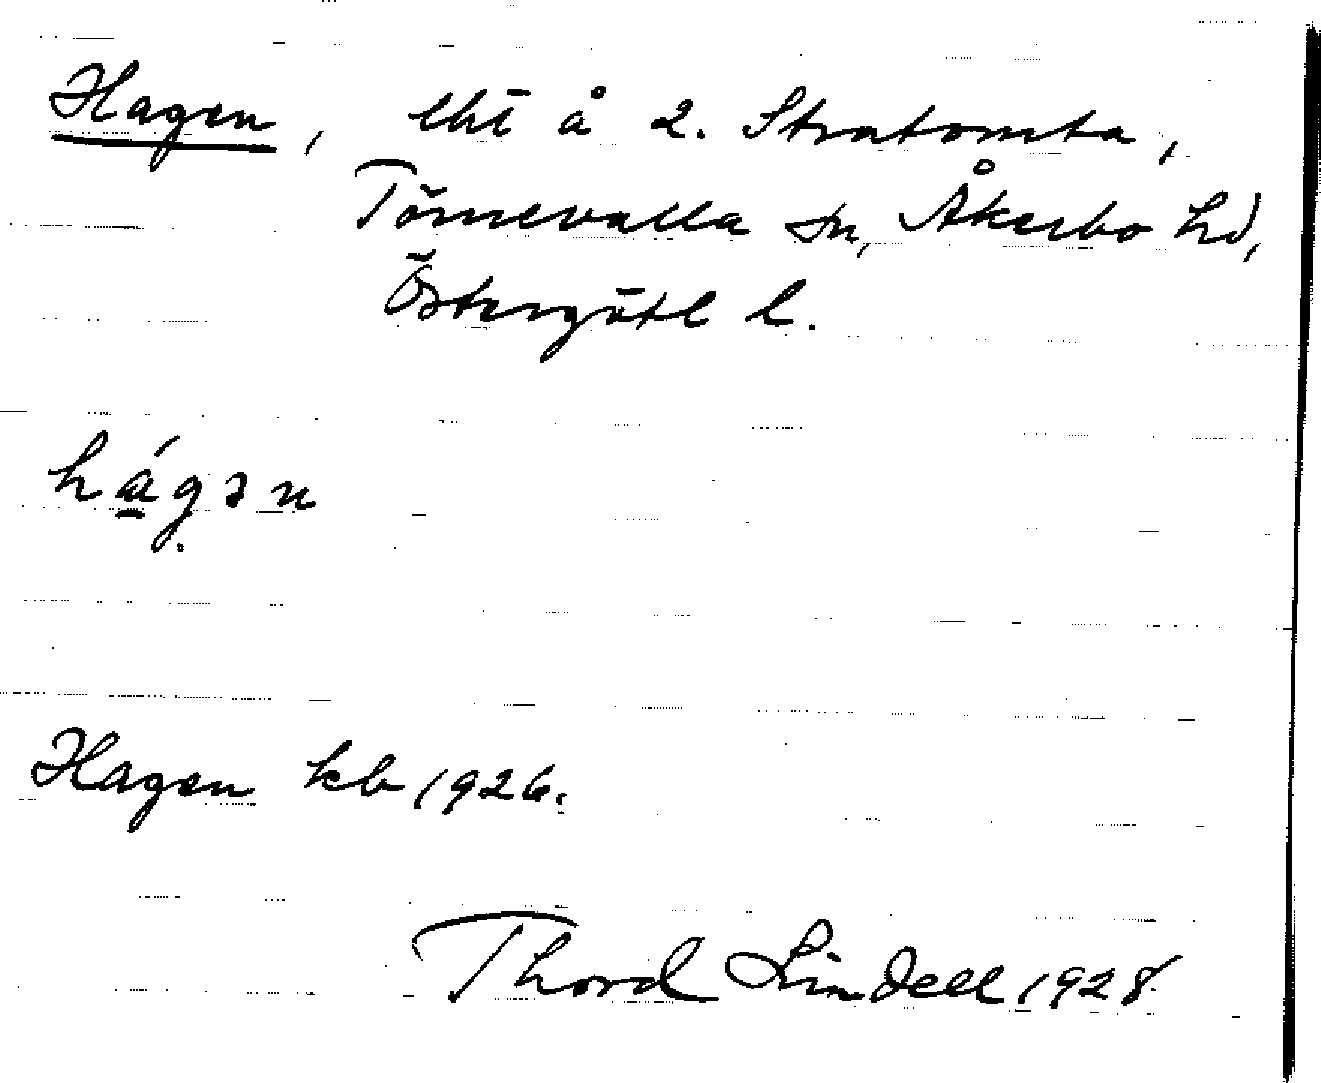 Hagen, lht å 2. Stratomta,
Törnevalla sn, Åkerbo hd,
Östergötl l.
hágən
Hagen kb 1926.
Thord Lindell 1928